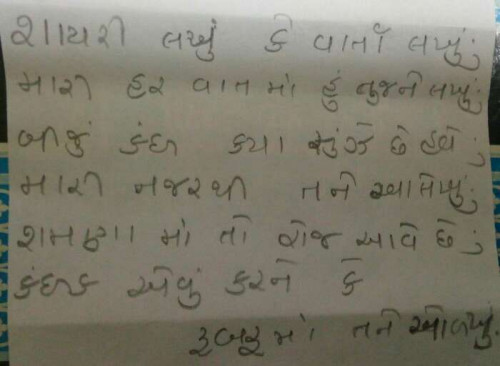 શાયરી લખું કે વાર્તા લખું;
મારી હર વાત માં હું તુજને લખું;
બીજું કંઇ કયા સુઝે છે હવે;
મારી નજરથી તને આલેખું;
શમણા માં તો રોજ આવે છે;
કંઇક એવું કરને કે
રૂબરૂ માં તને ઓળખું.